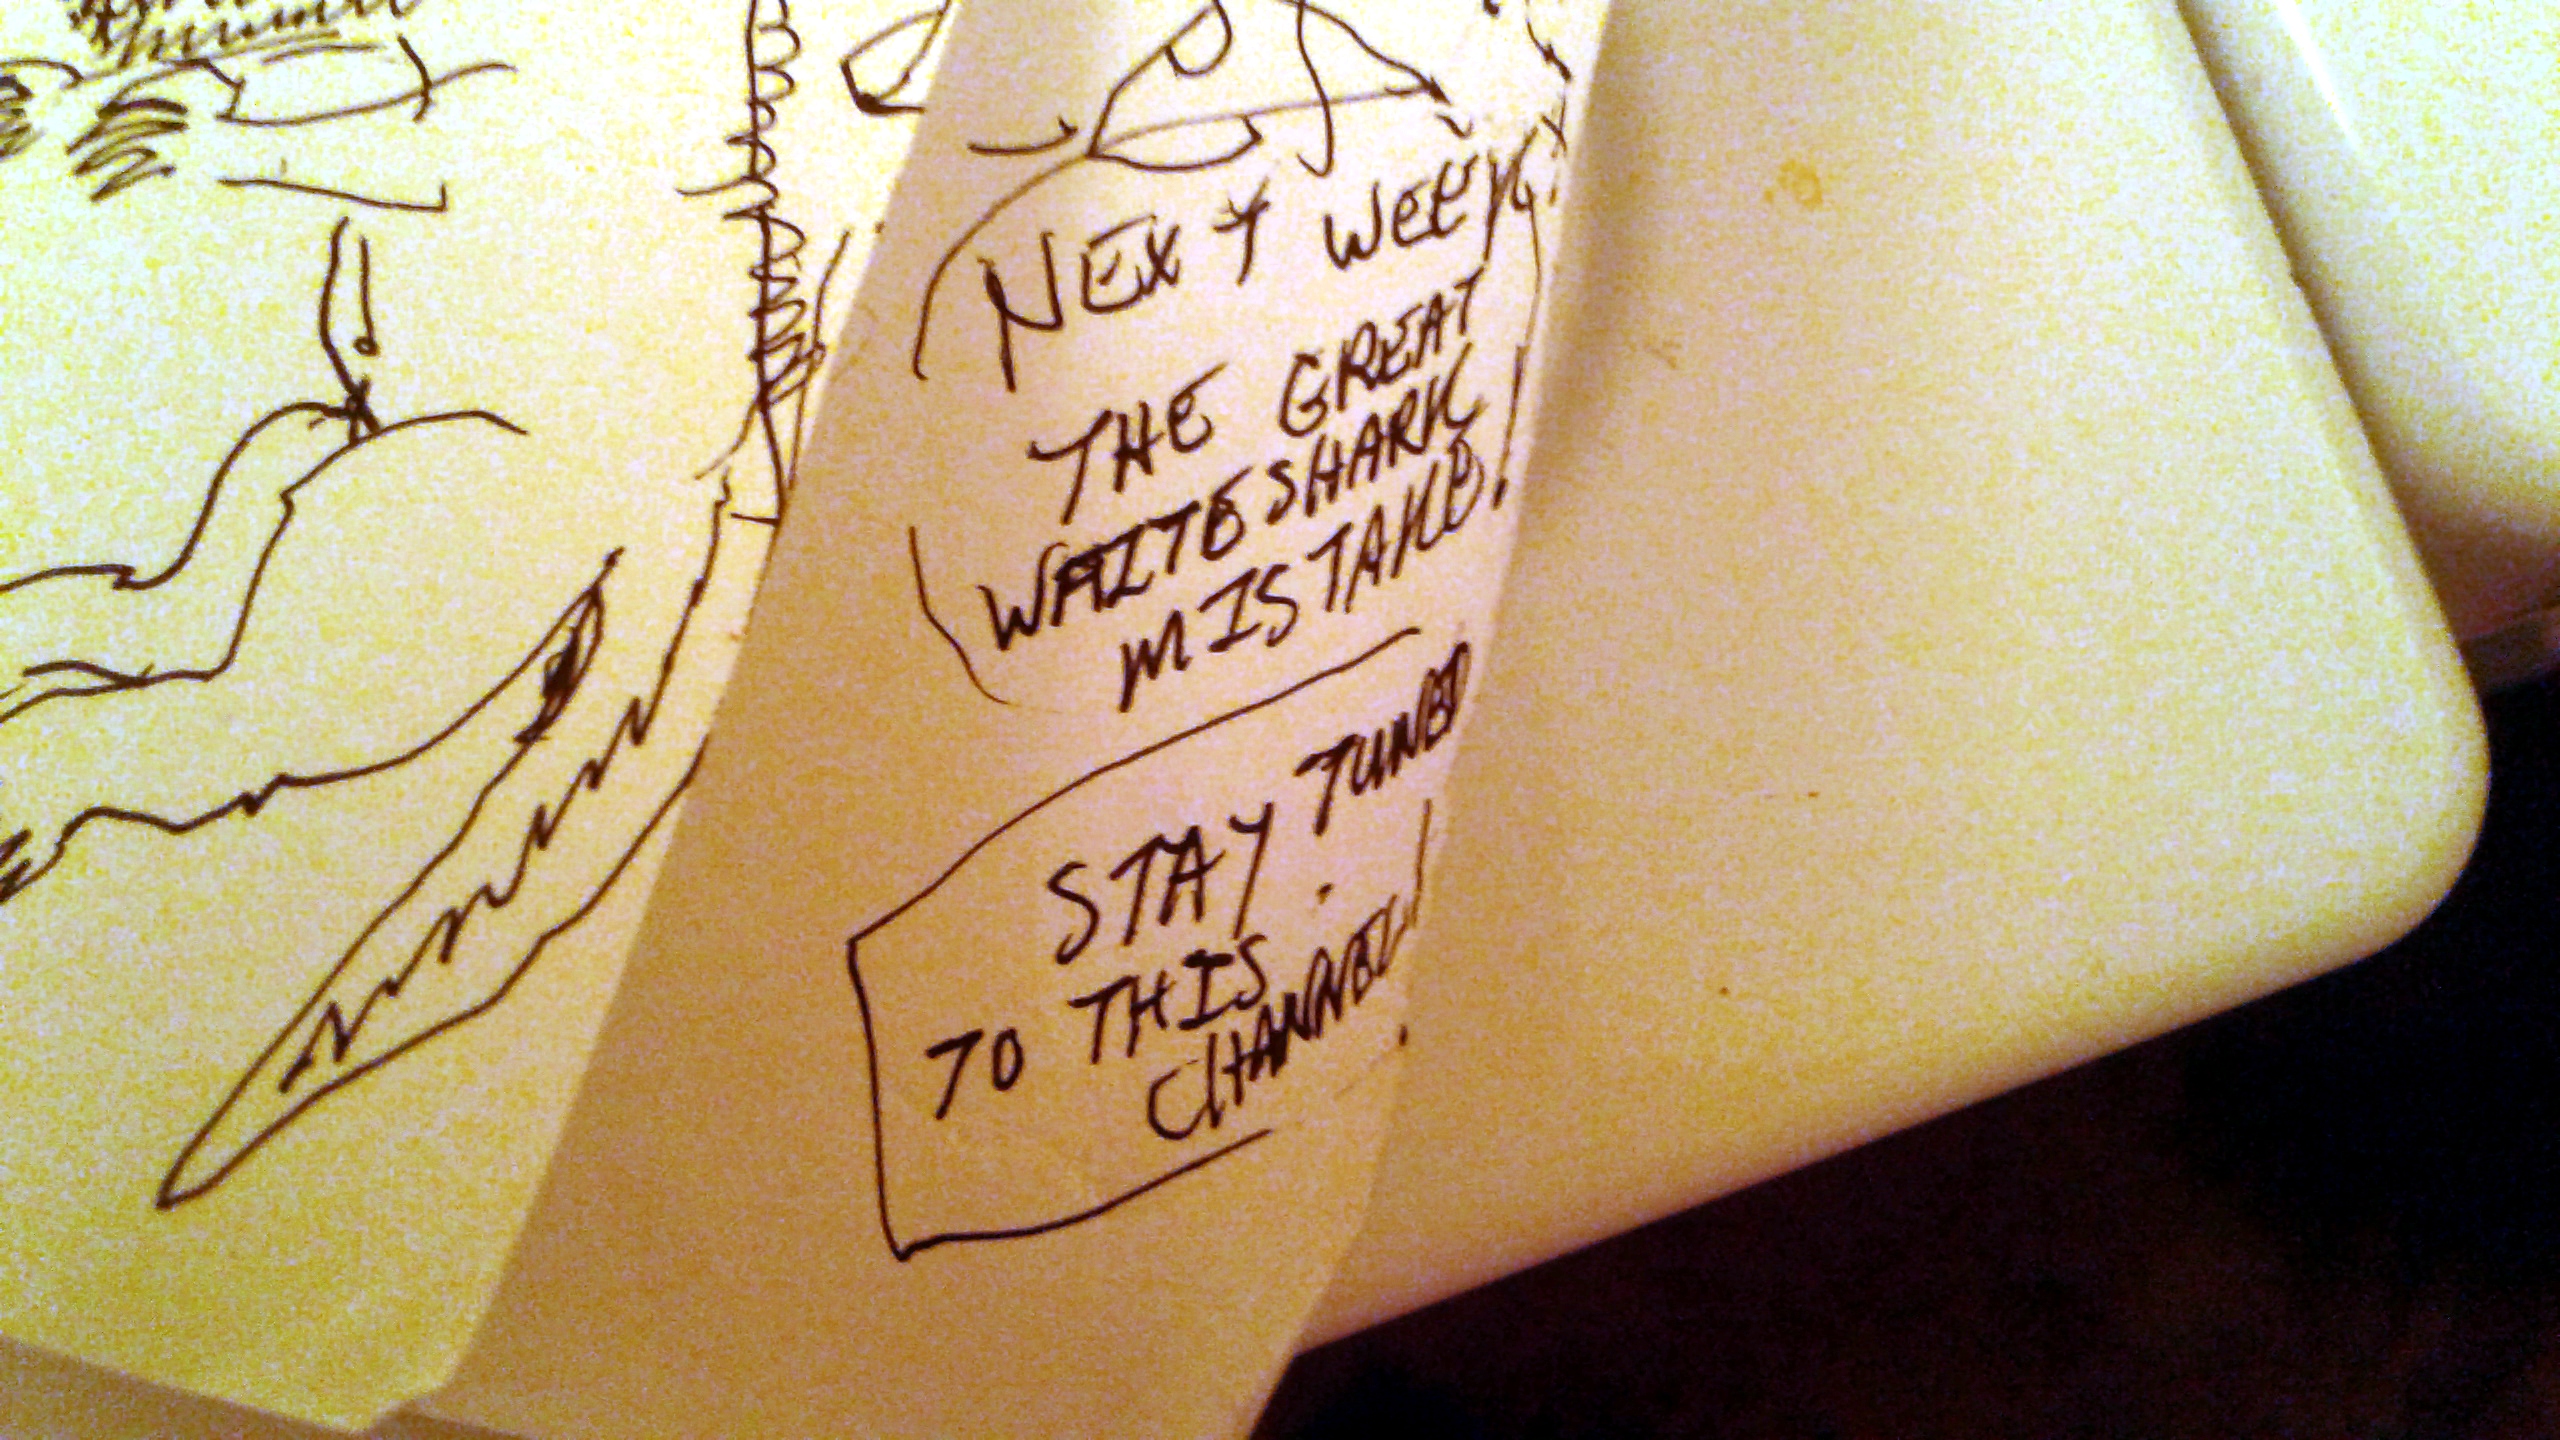 NEXT WEEK:
THE GREAT
WHITE SHARK
MISTAKE!
STAY TUNED
TO THIS
CHANNEL!